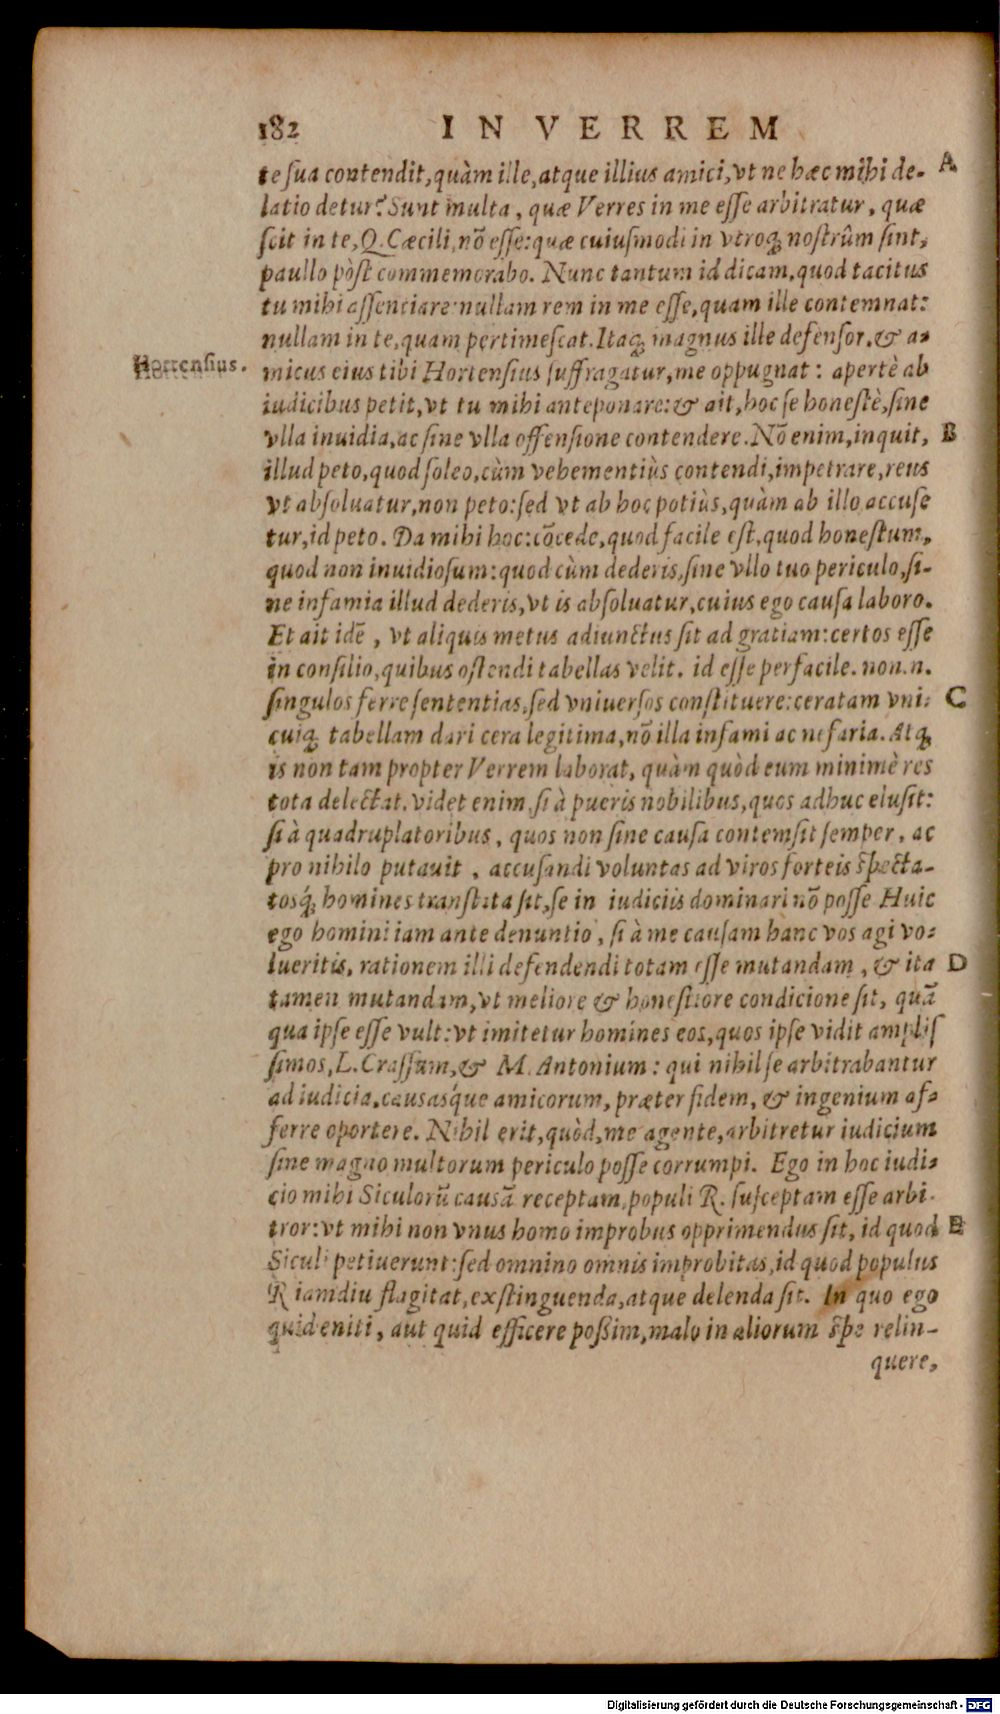 182 IN VERREM
te sua contendit, quàm ille, atque illius amici, vt ne hæc mihi de-
A
latio detur? Sunt multa, quæ Verres in me esse arbitratur, quæ
scit in te, Q. Cæcili, nō esse: quæ cuiusmodi in vtroq; nostrûm sint,
paullo pòst commemorabo. Nunc tantum id dicam, quod tacitus
tu mihi assentiare: nullam rem in me esse, quam ille contemnat:
nullam in te, quam pertimescat. Itaq; magnus ille defensor, & a-
Hortensius.
micus eius tibi Hortensius suffragatur, me oppugnat: apertè ab
iudicibus petit, vt tu mihi anteponare: & ait, hoc se honestè, sine
vlla inuidia, ac sine vlla offensione contendere. Nō enim, inquit,
B
illud peto, quod soleo, cùm vehementiùs contendi, impetrare, reus
vt absoluatur, non peto: sed vt ab hoc potiùs, quàm ab illo accuse
tur, id peto. Da mihi hoc: cōcede, quod facile est, quod honestum,
quod non inuidiosum: quod cùm dederis, sine vllo tuo periculo, si-
ne infamia illud dederis, vt is absoluatur, cuius ego causa laboro.
Et ait idē, vt aliquis metus adiunctus sit ad gratiam: certos esse
in consilio, quibus ostendi tabellas velit. id esse perfacile. non.n.
singulos ferre sententias, sed vniuersos constituere: ceratam vni-
C
cuiq; tabellam dari cera legitima, nō illa infami ac nefaria. Atq;
is non tam propter Verrem laborat, quàm quòd eum minimè res
tota delectat. videt enim, si à pueris nobilibus, quos adhuc elusit:
si à quadruplatoribus, quos non sine causa contemsit semper, ac
pro nihilo putauit, accusandi voluntas ad viros forteis specta-
tosq́; homines translata sit, se in iudiciis dominari nō posse Huic
ego homini iam ante denuntio, si à me causam hanc vos agi vo-
lueritis, rationem illi defendendi totam esse mutandam, & ita
D
tamen mutandam, vt meliore & honestiore condicione sit, quā
qua ipse esse vult: vt imitetur homines eos, quos ipse vidit amplis
simos, L. Crassum, & M. Antonium: qui nihil se arbitrabantur
ad iudicia, causasq́ue amicorum, præter fidem, & ingenium af-
ferre oportere. Nihil erit, quòd, me agente, arbitretur iudicium
sine magno multorum periculo posse corrumpi. Ego in hoc iudi-
cio mihi Siculorū causā receptam, populi R. susceptam esse arbi-
tror: vt mihi non vnus homo improbus opprimendus sit, id quod
E
Siculi petiuerunt: sed omnino omnis improbitas, id quod populus
R iamdiu flagitat, exstinguenda, atque delenda sit. In quo ego
quid eniti, aut quid efficere possim, malo in aliorum spe relin-
quere,
Digitalisierung gefördert durch die Deutsche Forschungsgemeinschaft - DFG